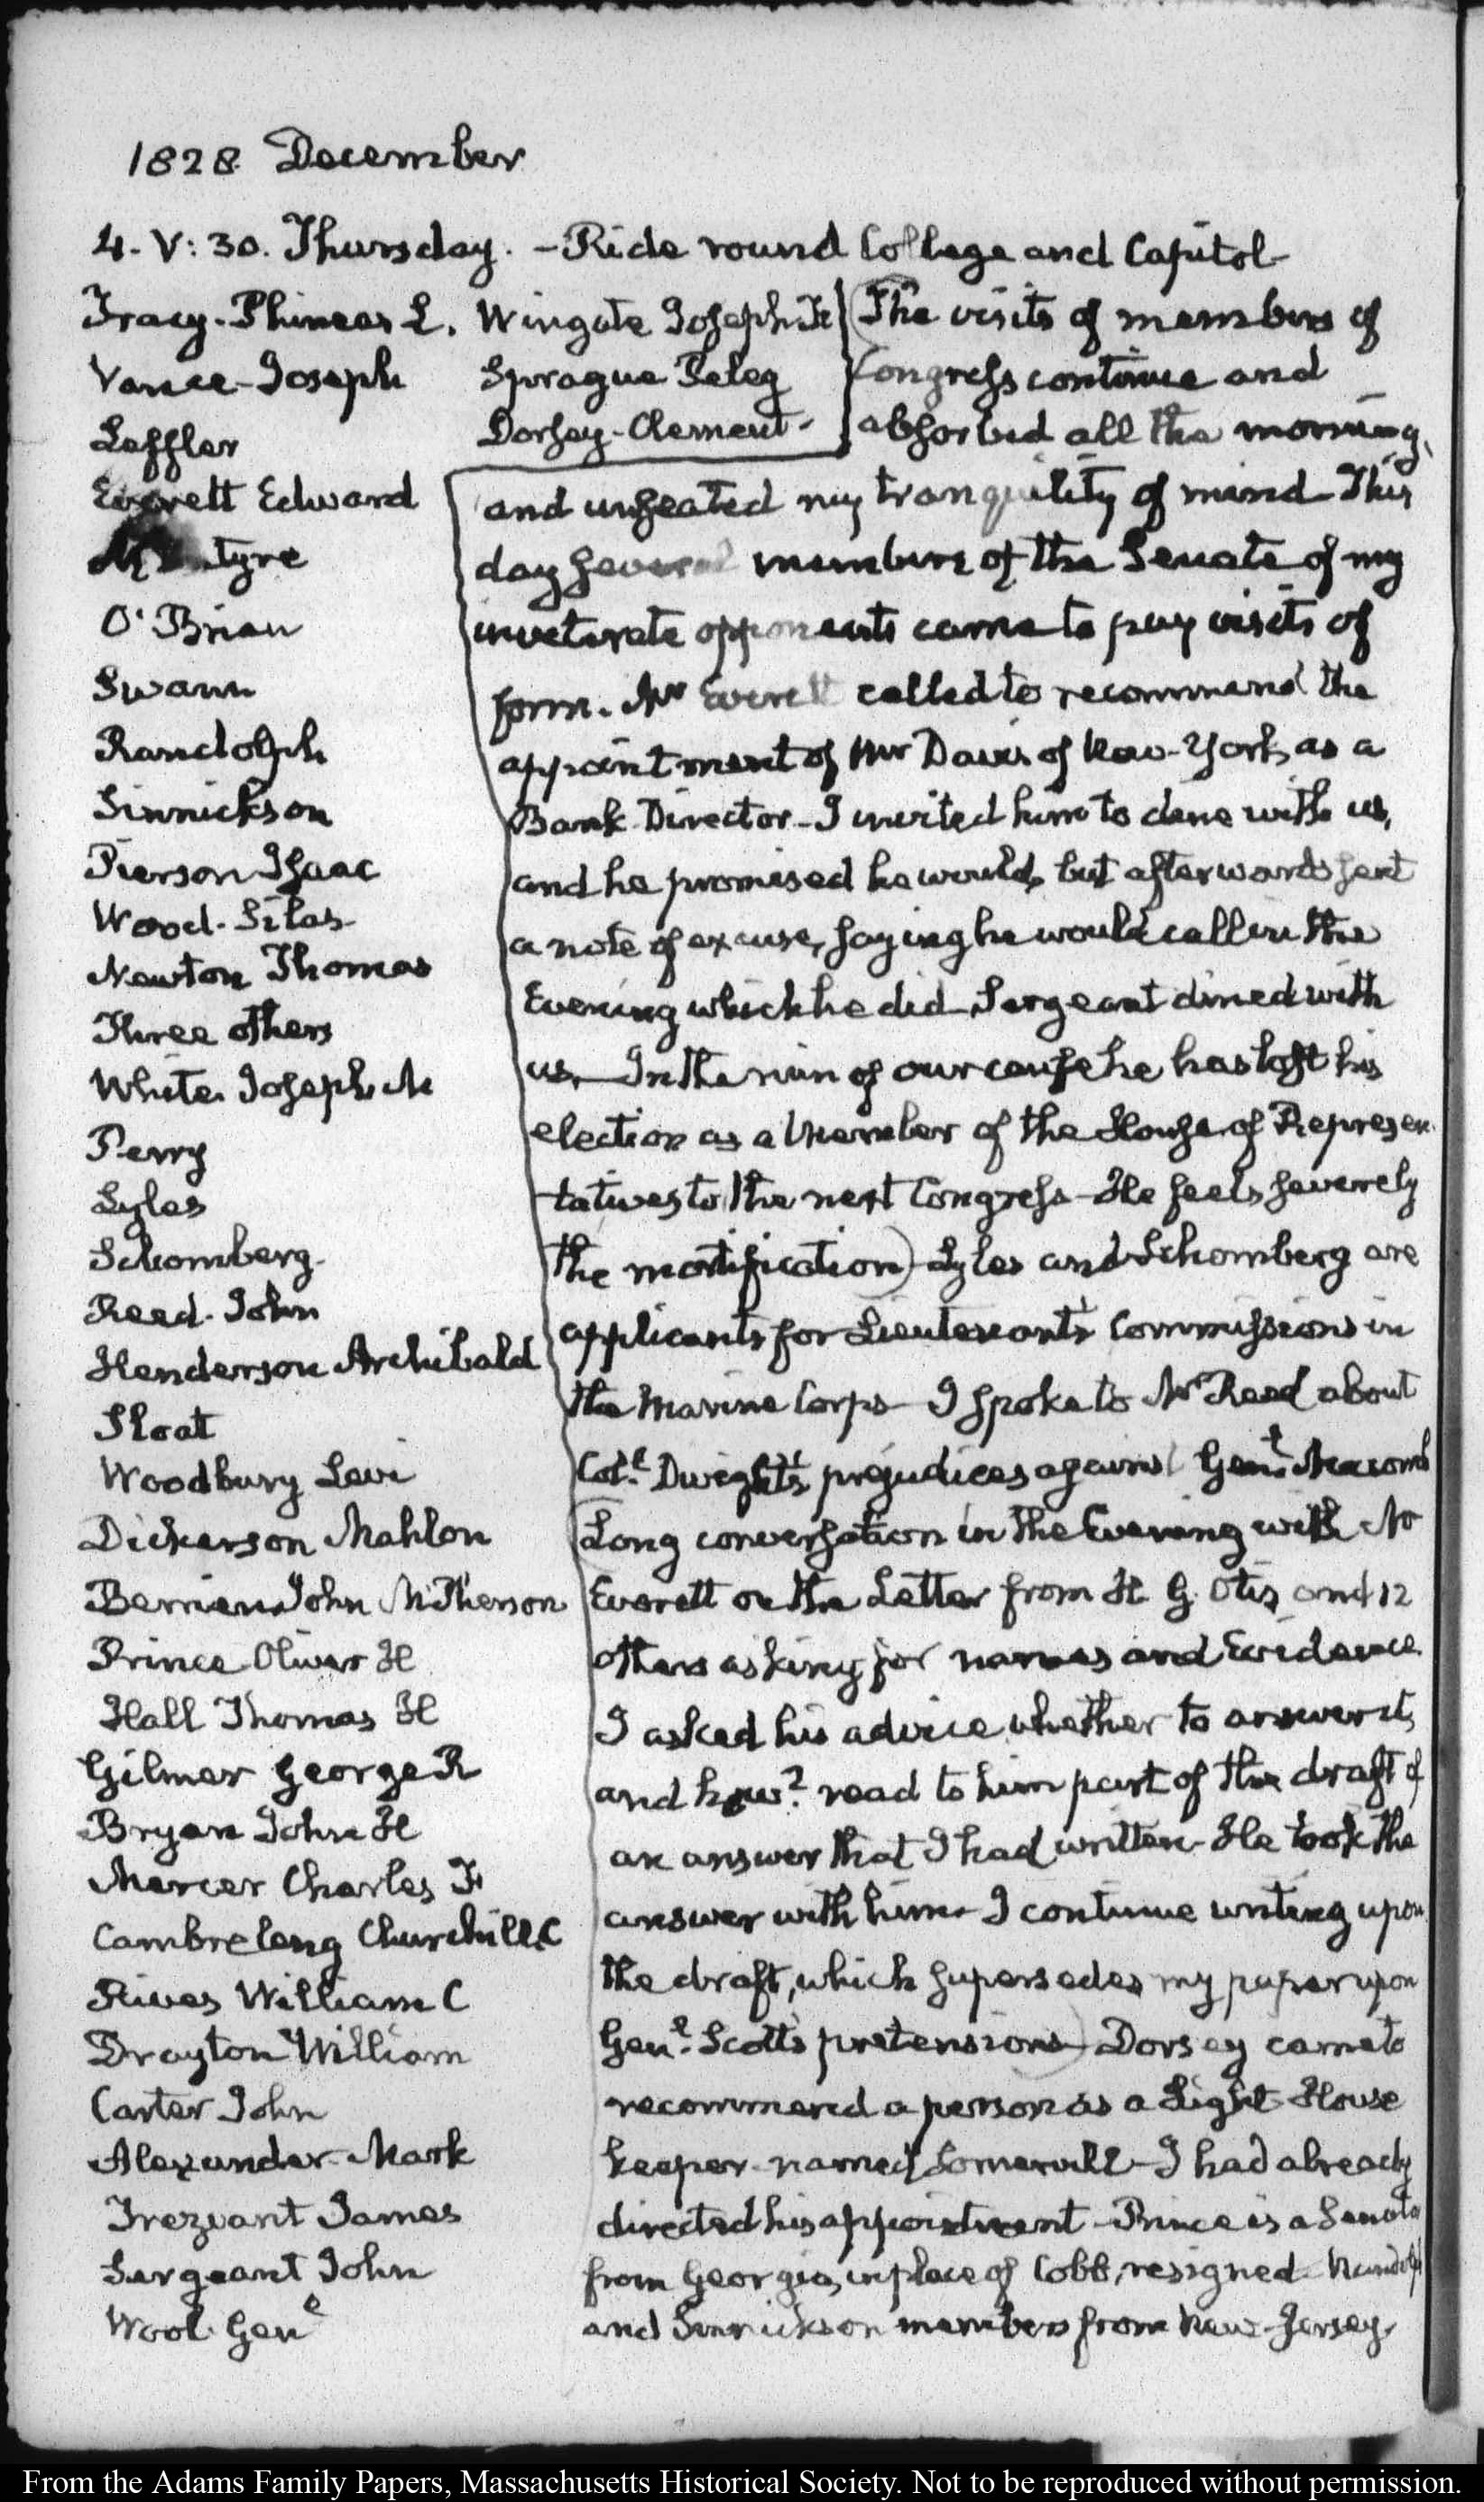 1828 December
4. V: 30. Thursday. - Ride round College and Capitol
Tracy. Phineas L.
Vance Joseph
Leffler
Everett Edward
tyre
O'Brien
Swann
Randolph
Sinnickson
Pierson Isaac
Wood. Silas
Newton Thomas
Three others
White. Joseph M
Perry
Lyles
Schomberg.
Reed. John
Henderson Archibald
Sloat
Woodbury Levi
Dickerson Mahlon
Berrien John McPherson
Prince Oliver H
Hall Thomas H
Gilmer George R
Bryan John H
Mercer Charles F
Cambreleng Churchill. C
Rives William C
Drayton William
Carter John
Alexander Mark
Trezvant James
Sergeant John
Wool. Genl
Wingate Joseph. Jr
Sprague Peleg
Dorsey Clement
The visits of members of
Congress continue and
absorbed all the morning,
and unseated my tranquility of mind - This
day several members of the Senate of my
inveterate opponents came to pay visits of
form. Mr Everett called to recommend the
appointment of Mr Davis of New-York, as a
Bank Director - I invited him to dine with us,
and he promised he would, but afterwards sent
a note of excuse, saying he would call in the
Evening which he did. Sergeant dined with
us. - In the ruin of our cause he has lost his
election as a Member of the House of Represen-
tatives to the next Congress - He feels severely
the mortification) Lyles and Schomberg are
applicants for Lieutenant's Commissions in
the Marine Corps - I spoke to Mr Reed about
Coll. Dwight's prejudices against Genl. Macomb
Long conversation in the Evening with Mr
Everett on the Letter from H. G. Otis and 12
others asking for names and Evidence
I asked his advice whether to answer it,
and how? read to him part of the draft of
an answer that I had written - He took the
answer with him - I continue writing upon
the draft, which supersedes my paper upon
Genl. Scott's pretensions) Dorsey came to
recommend a person as a Light House
keeper named Somervill - I had already
directed his appointment - Prince is a Senator
from Georgia, in place of Cobb, resigned. Randolph
and Sinnickson members from New-Jersey.
From the Adams Family Papers, Massachusetts Historical Society. Not to be reproduced without permission.